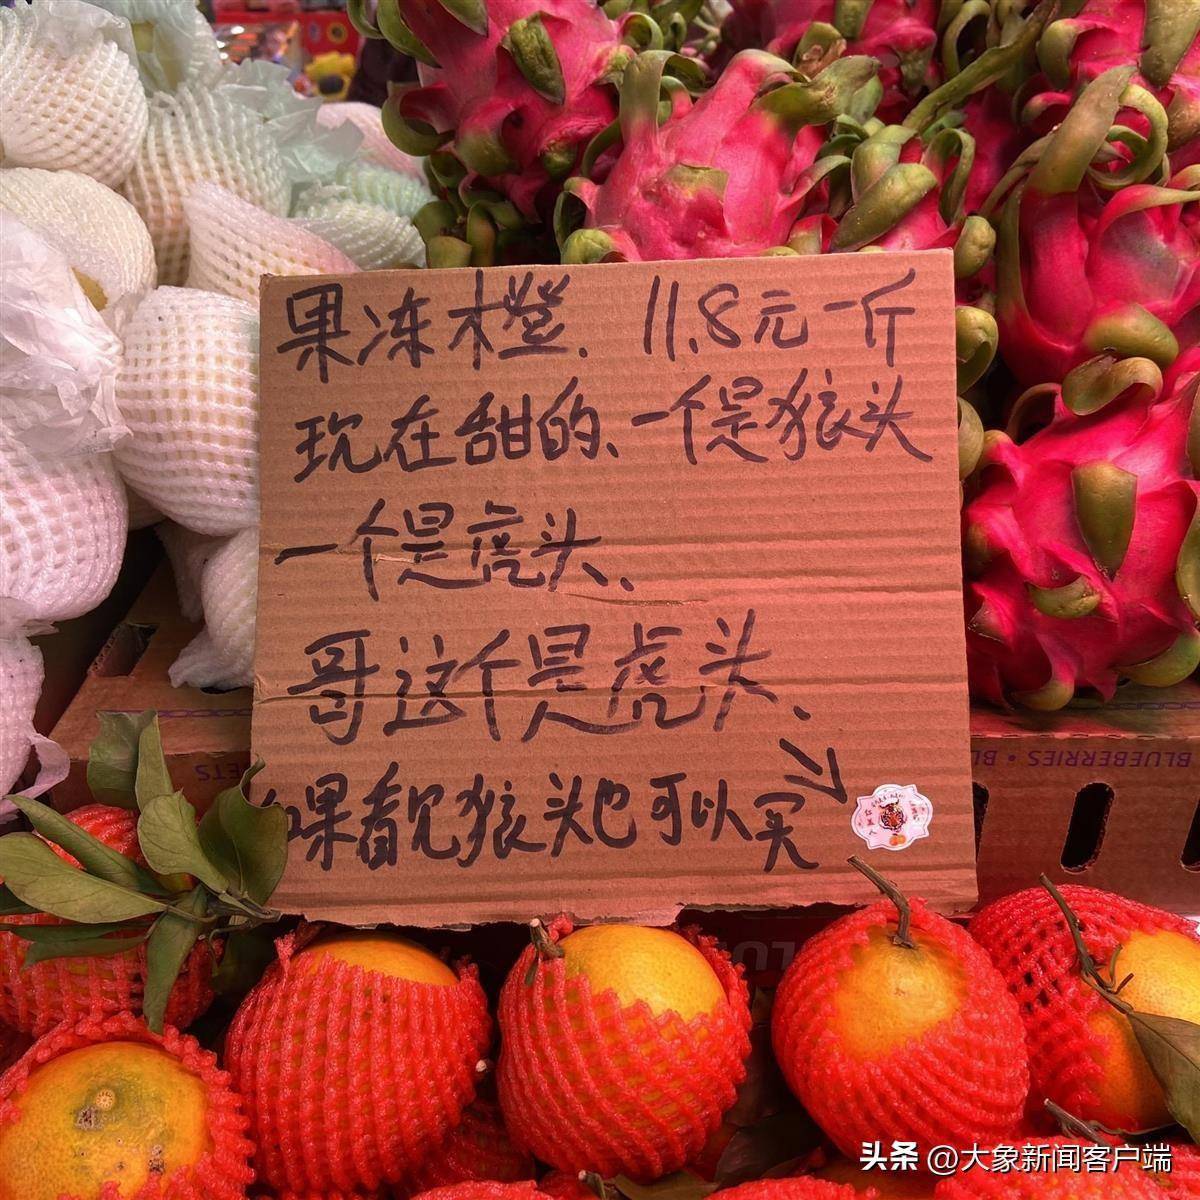 果冻橙、11.8元一斤
现在甜的、一个是狼头
一个是虎头、
哥这个是虎头、
如果看见狼头也可以买
BLUEBERRIES
头条 @大象新闻客户端